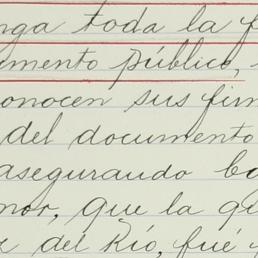 nga toda la f
umento público,
onocen sus firm
del documento
asegurando ba
nor, que la qu
z del Río, fué y